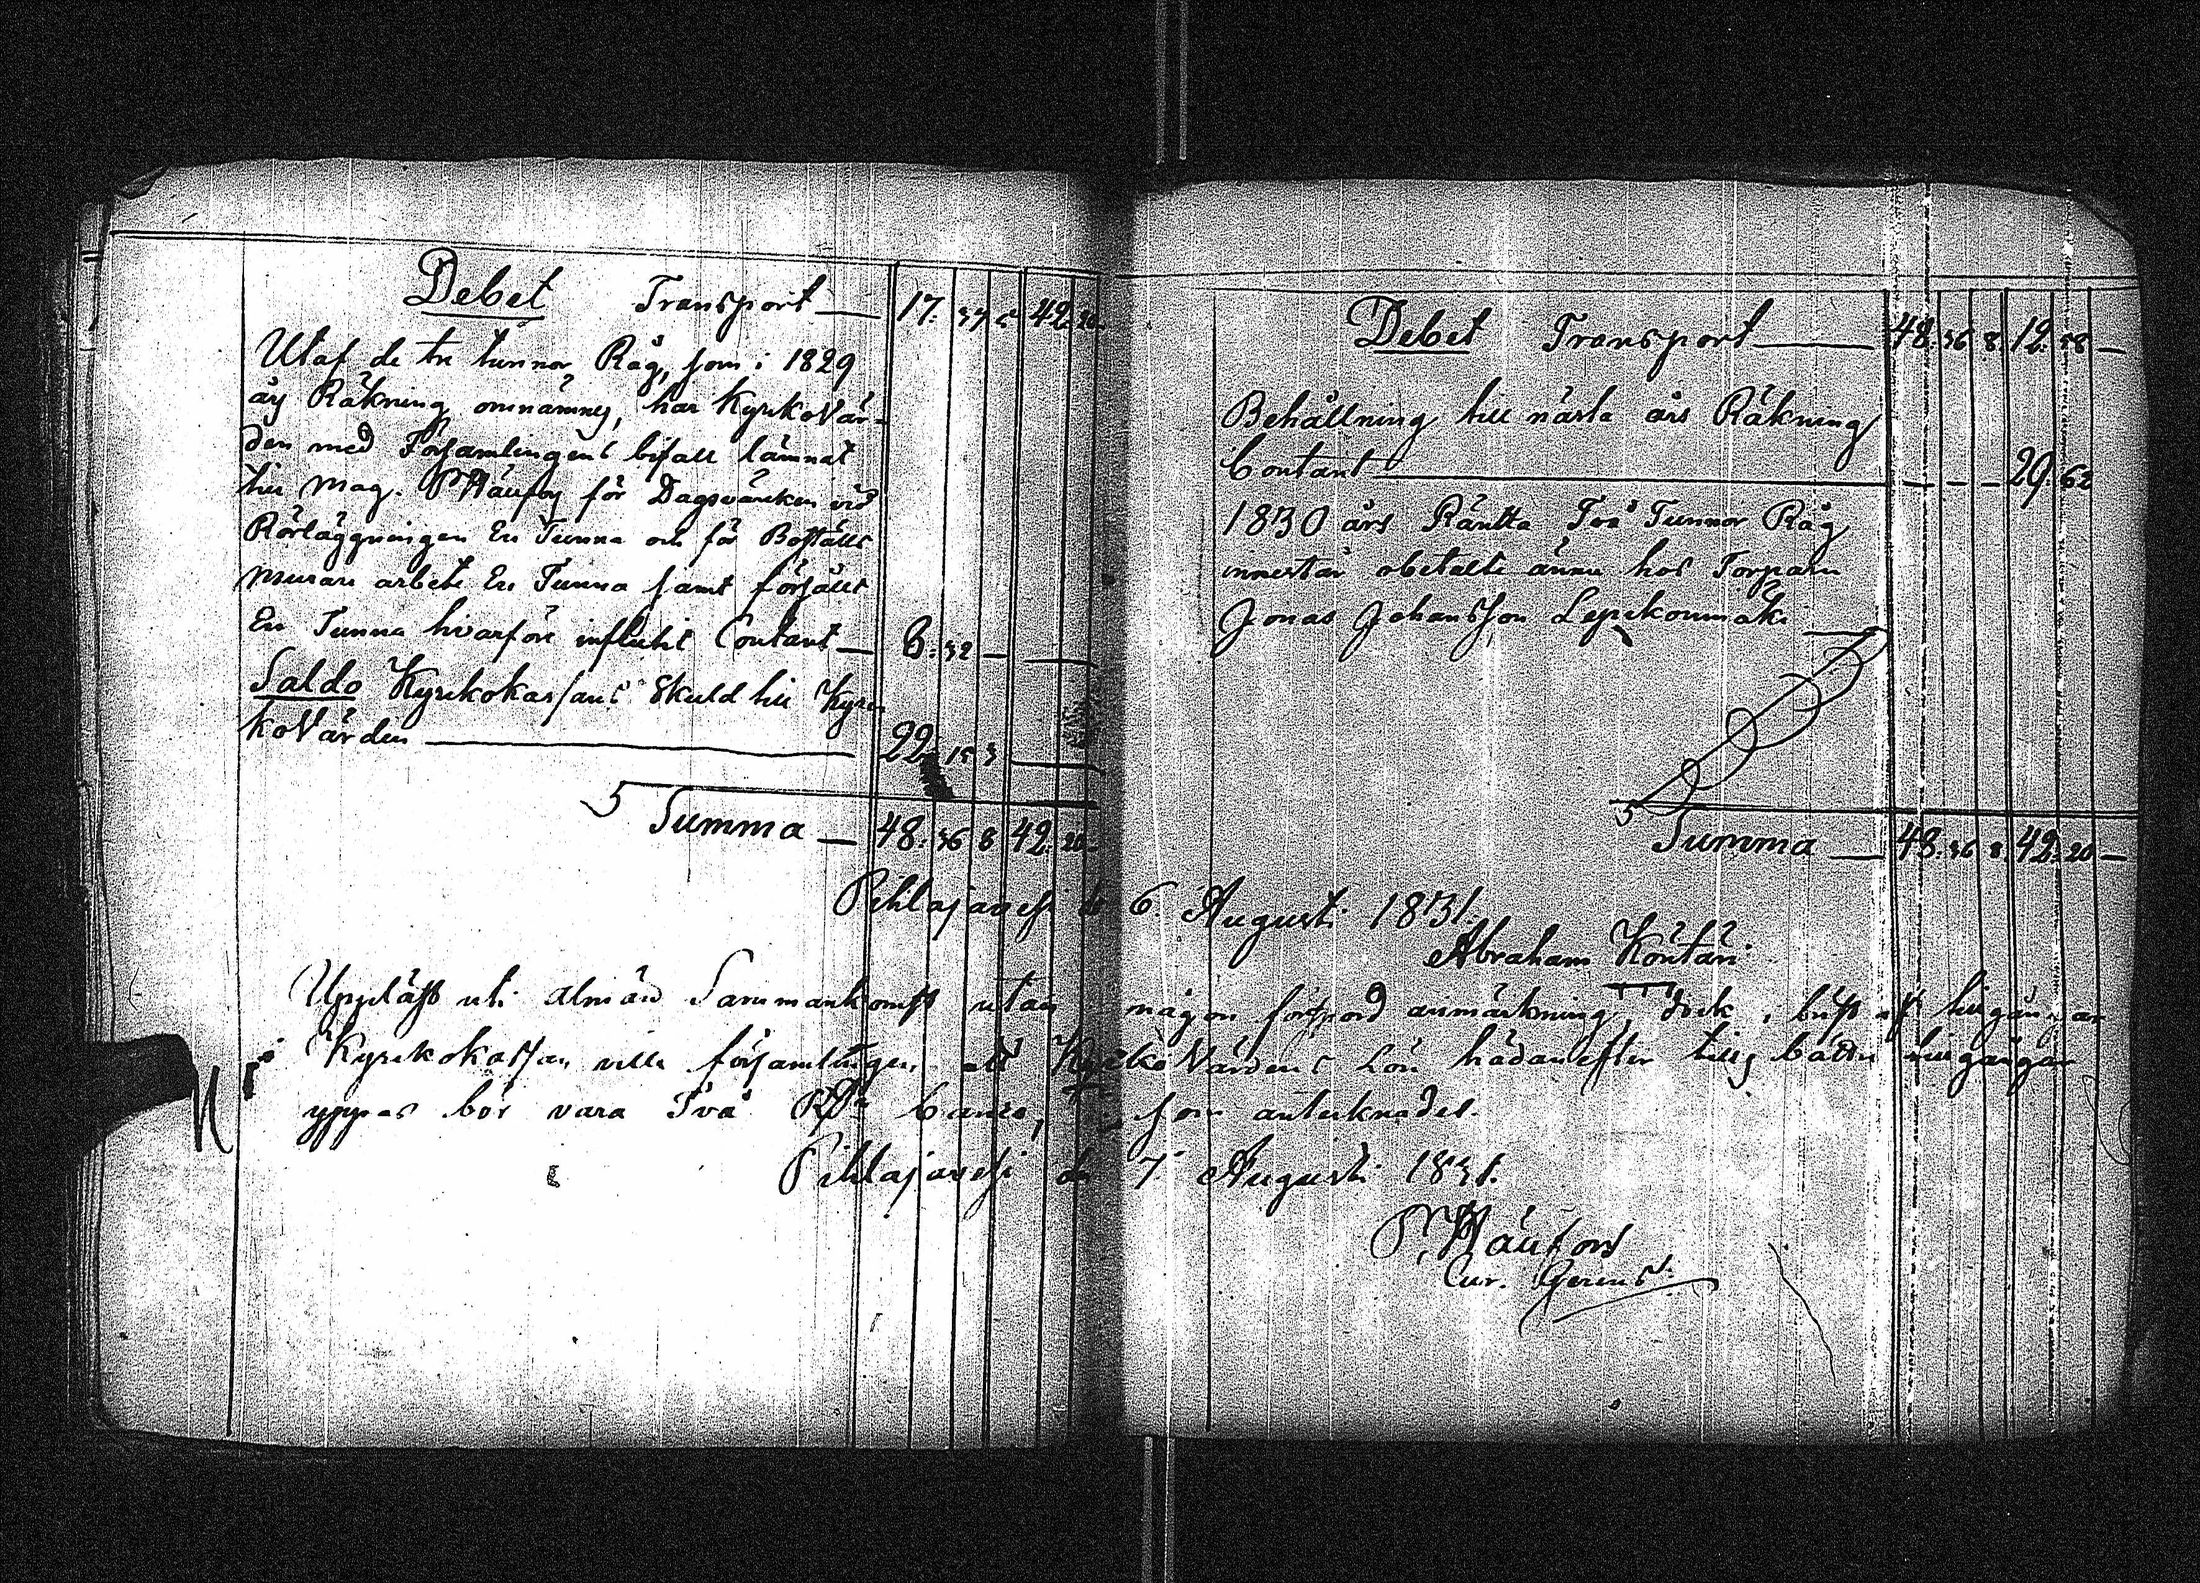 Debet Transport — 17. 37 5 42. 20.
Utaf de tre tunnor Råg, som i 1829
års Räkning omnämnes, har Kyrkovär-
den med Församlingens bifall lämnat
till Mag. P Häufors för Dagsvärken vid
Rörläggningen En Tunna och för Boställs
Murare arbete En Tunna samt försållt
En Tunna hvarföre influtit Contant — 8. 32 —
Saldo Kyrkokassans Skuld till Kyr-
koVärden — 22. 15 3
Summa — 48. 36 8 42. 20 —
Debet Transport — 48. 36 8. 12. 58 —
Behållning till nästa års Räkning
Contant — 29. 62
1830 års Ränta Två Tunnor Råg
innestår obetalte ännu hos Torparen
Jonas Johansson Lepikonmäki
Summa — 48. 36 8. 42. 20 —
Pihlajavesi d. 6. Augusti 1831.
Abraham Köntäri
Uppläst uti allmän Sammankomst utan någon förspord anmärkning, dock, i brist af tillgångar
i Kyrkokassan ville församlingen att KyrkoVärdens Lön hädanefter tills bättre tillgångar
yppas bör vara Två RD Banco, som antecknades.
Pihlajavesi d. 7 Augusti 1831.
P Häufors
Cur. Gerens.